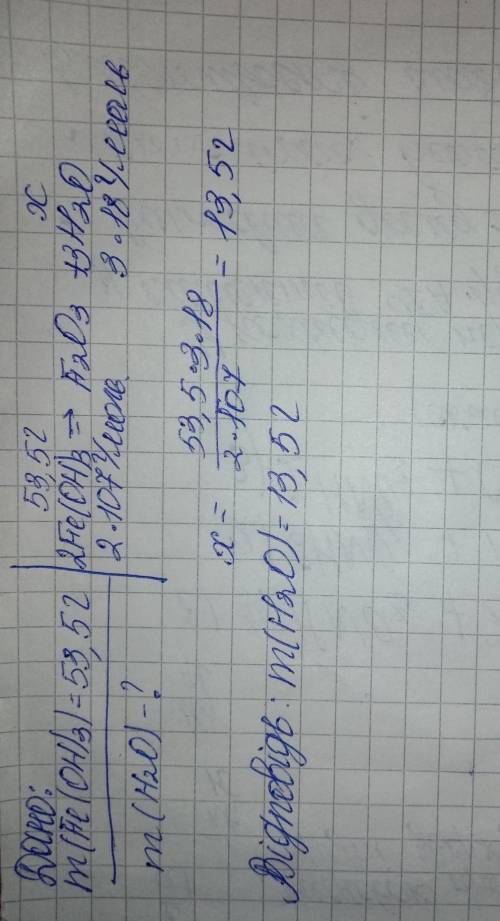 Дано:
m(Fe(OH)3) = 53,5г
m(H2O) - ?
53,5г x
2Fe(OH)3 → F2O3 + 3H2O
2·107 г/моль 3·18 г/моль
x = 53,5·3·18 / 2·107 = 13,5г
Відповідь: m(H2O) = 13,5г